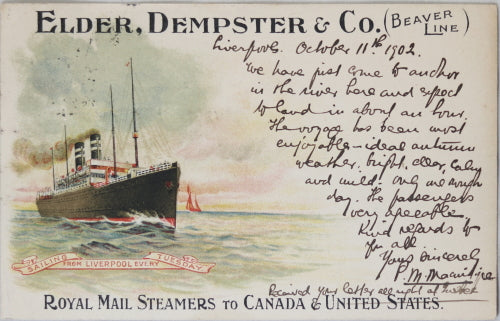 ELDER, DEMPSTER & CO. (BEAVER LINE)
Liverpool. October 11th 1902.
We have just come to anchor
in the river here and expect
to land in about an hour.
The voyage has been most
enjoyable - ideal autumn
weather, bright, clear, calm
and mild - only one rough
day. The passengers
very agreeable.
Kind regards to
you all.
Yours sincerely
P. M.
SAILING FROM LIVERPOOL EVERY TUESDAY
Received your letter all right at
ROYAL MAIL STEAMERS TO CANADA & UNITED STATES.